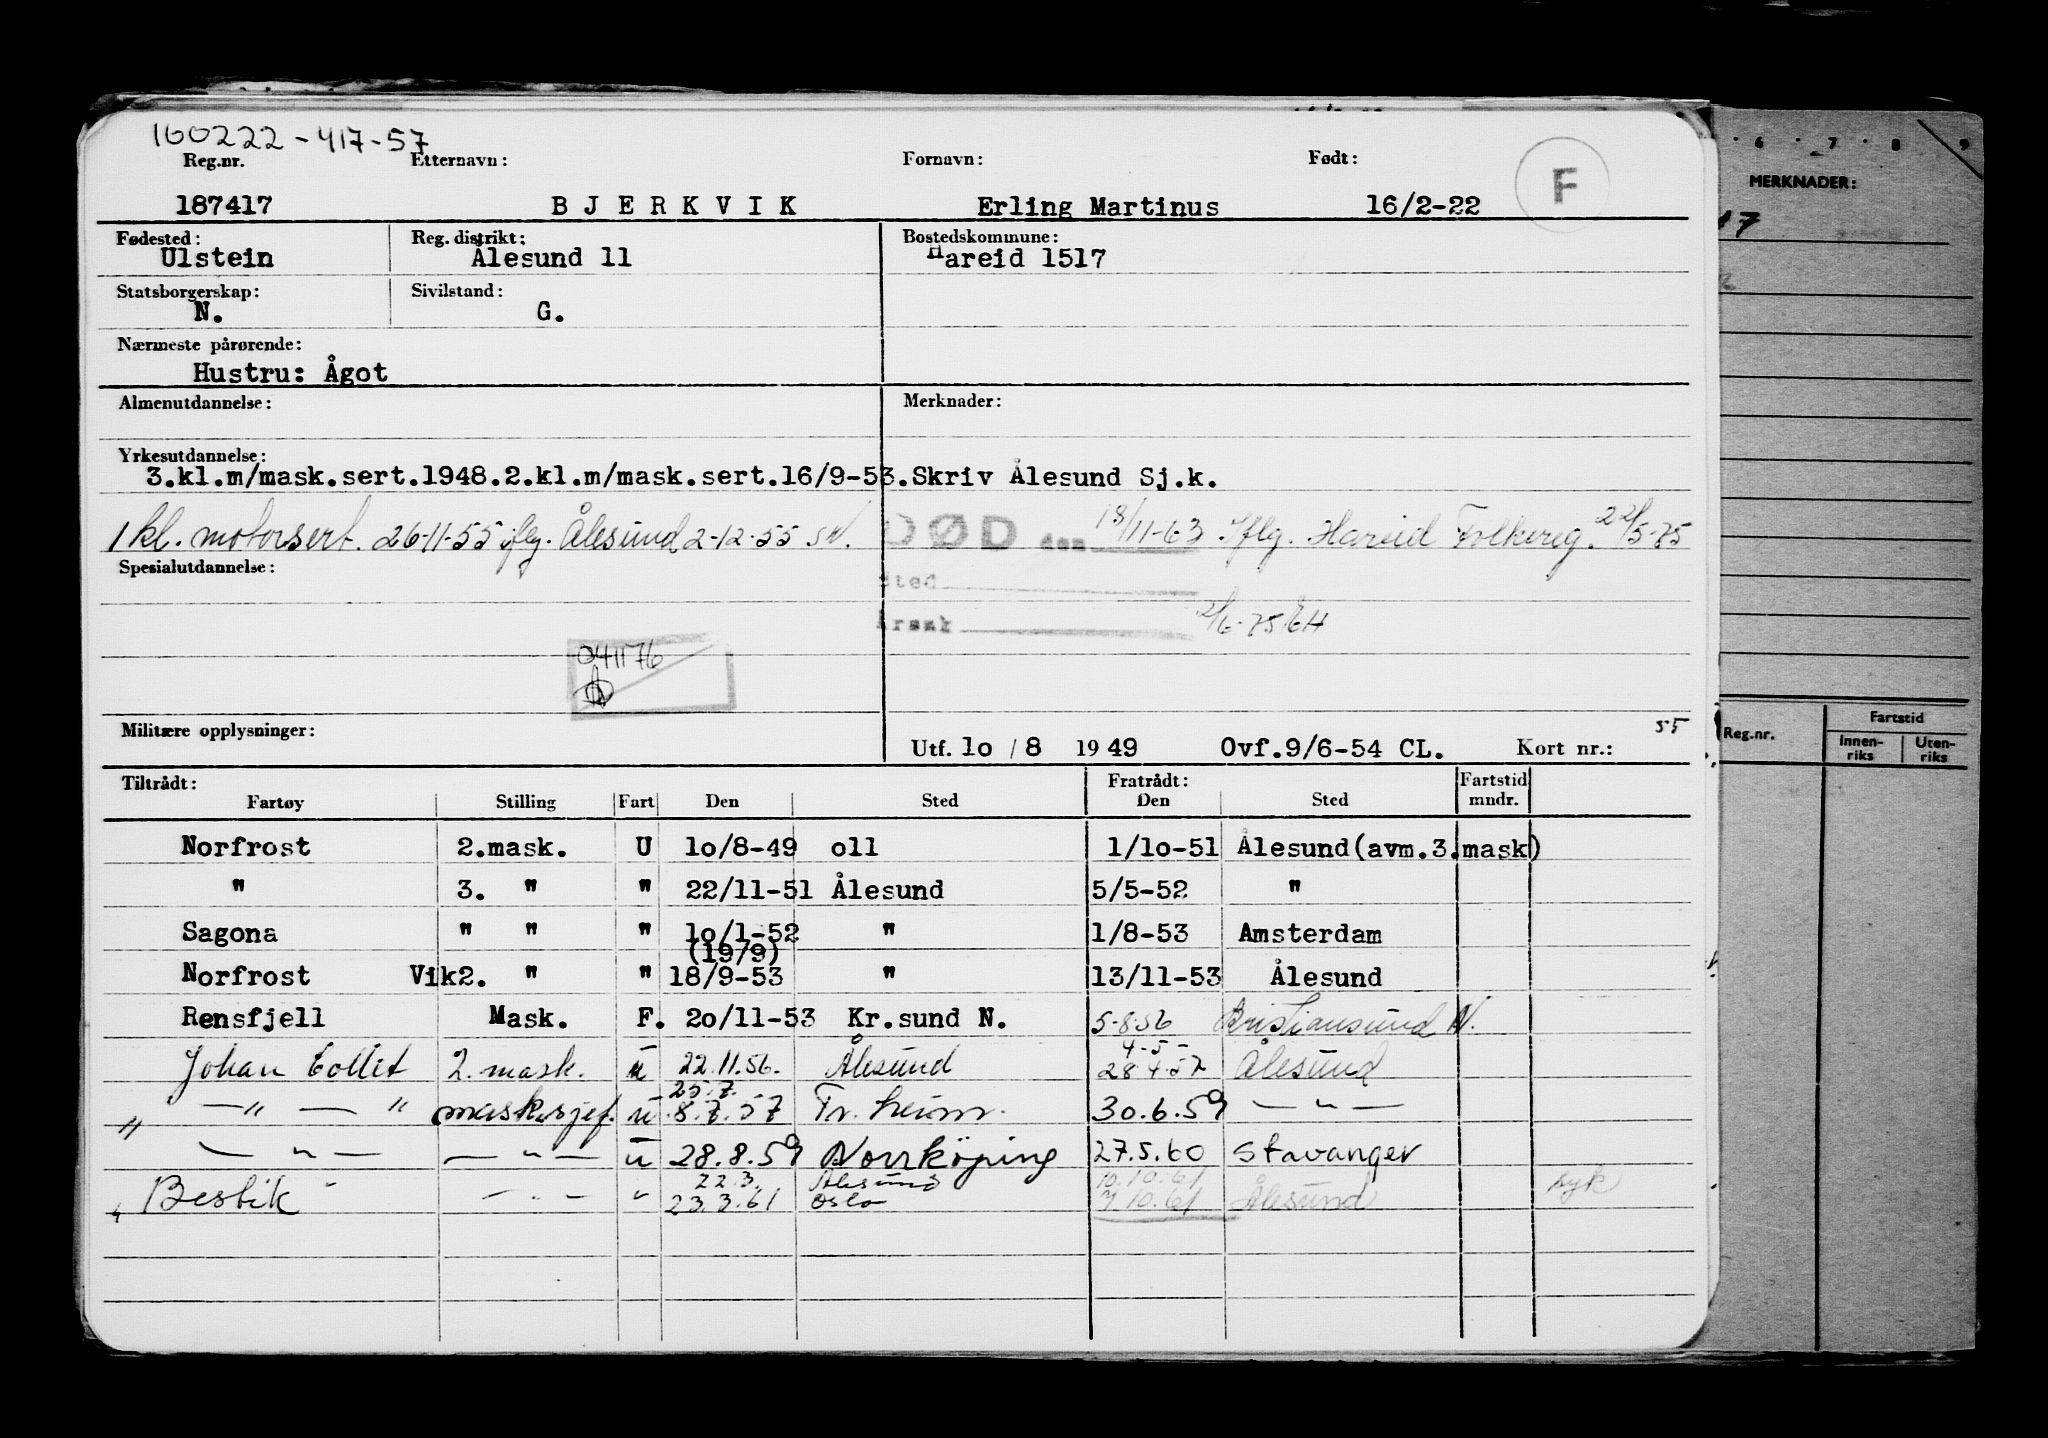 100222-417-57
Reg.nr. Etternavn: Fornavn: Født:
187417 BJERKVIK Erling Martinus 16/2-22 F
Fødested: Reg. distrikt: Bostedskommune:
Ulstein Ålesund 11 Hareid 1517
Statsborgerskap: Sivilstand:
N. G.
Nærmeste pårørende:
Hustru: Ågot
Almenutdannelse: Merknader:
Yrkesutdannelse:
3.kl.m/mask.sert.1948.2.kl.m/mask.sert.16/9-53.Skriv Ålesund Sj.k.
1 kl. motorsert. 26-11-55 iflg. Ålesund 2-12-55 DØD den 18/11-63 Iflg. Hareid Folkereg. 22/5-75
Spesialutdannelse: Sted
Årsak 2/6-75
041176
Militære opplysninger: Utf. 10 / 8 1949 Ovf.9/6-54 CL. Kort nr.: 55
Tiltrådt: Fratrådt: Fartstid
Fartøy Stilling Fart Den Sted Den Sted mndr.
Norfrost 2.mask. U 1o/8-49 oll 1/1o-51 Ålesund(avm.3.mask)
" 3. " " 22/11-51 Ålesund 5/5-52 "
Sagona " " " 1o/1-52 " 1/8-53 Amsterdam
(19/9)
Norfrost Vik2. " " 18/9-53 " 13/11-53 Ålesund
Rensfjell Mask. F. 2o/11-53 Kr.sund N. 5-8-56 Kristiansund N.
4-5-
Johan Collet 2. mask. u 22.11.56. Ålesund 28.4.57 Ålesund
25.7.
" — " — " masksjef. u 8.7.57 Tr. heim. 30.6.59 — " —
— " — — " — u 28.8.59 Norrköping 27.5.60 Stavanger
22.3. Ålesund 10.10.61
" Besbik — " — " 23.3.61 Oslo 7.10.61 Ålesund syk
6 7 8 9
MERKNADER:
Reg.nr. Fartstid
Innen-riks Uten-riks